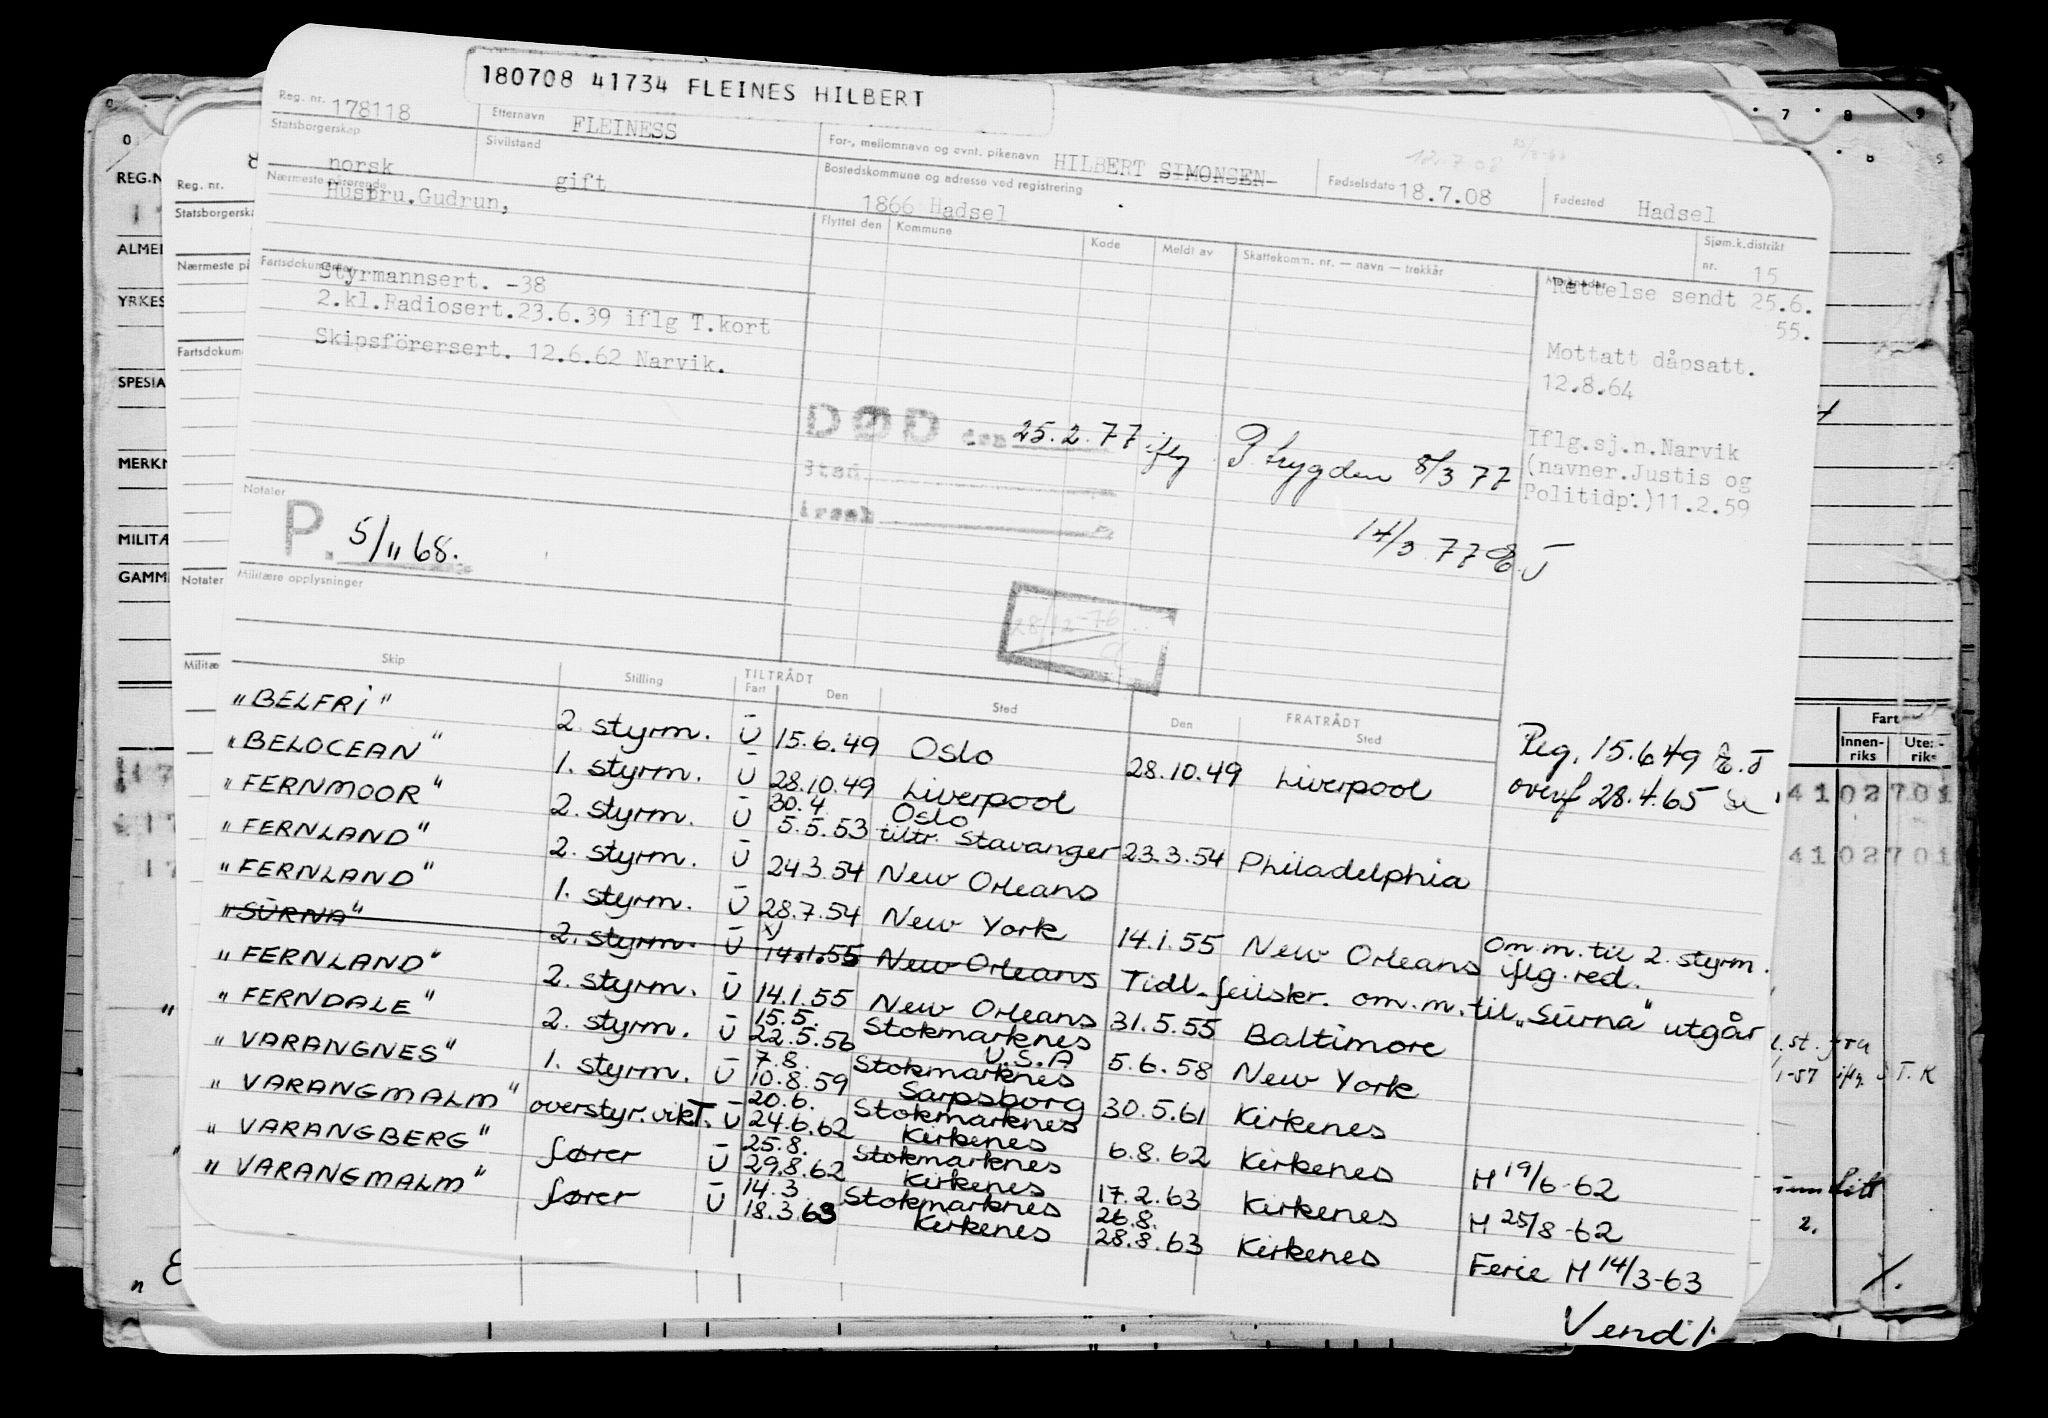 180708 41734 FLEINES HILBERT
Reg. nr. 178118 Etternavn FLEINESS For-, mellomnavn og evnt. pikenavn HILBERT SIMONSEN Fødselsdato 18.7.08 Fødested Hadsel
12.7.08
Statsborgerskap norsk Sivilstand gift Bostedskommune og adresse ved registrering 1866 Hadsel Sjøm.k.distrikt nr. 15
Nærmeste pårørende Husbru.Gudrun,
Flyttet den Kommune Kode Meldt av Skattekomm. nr. — navn — trekkår Merknader
Fartsdokumenter Styrmannsert. -38
2.kl.Radiosert.23.6.39 iflg T.kort
Skipsförersert. 12.6.62 Narvik.
Rettelse sendt 25.6.
55.
Mottatt dåpsatt.
12.8.64
Iflg.sj.n.Narvik
(navner.Justis og
Politidp:)11.2.59
DØD den 25.2.77 iflg P.trygden 8/3 77
Sted
Årsak
14/3.77 E.J
Notater
P. 5/11 68.
Militære opplysninger
28/12-76
Skip Stilling TILTRÅDT Fart Den Sted FRATRÅDT Den Sted
Reg. 15.6.49 E.J
overf 28.4.65
"BELFRI" 2. styrm. U 15.6.49 Oslo 28.10.49 Liverpool
"BELOCEAN" 1. styrm. U 28.10.49 Liverpool
"FERNMOOR" 2. styrm. U 30.4. 5.5.53 Oslo tiltr. Stavanger 23.3.54 Philadelphia
"FERNLAND" 2. styrm. U 24.3.54 New Orleans
"FERNLAND" 1. styrm. U 28.7.54 New York 14.1.55 New Orleans om.m. til 2. styrm. iflg. red.
"SÜRNA" 2. styrm. U 14.1.55 New Orleans Tidl. feilskr. om.m. til "Sürna" utgår
"FERNLAND" 2. styrm. U 14.1.55 New Orleans 31.5.55 Baltimore
"FERNDALE" 2. styrm. U 15.5. 22.5.56 Stokmarknes U.S.A 5.6.58 New York
"VARANGNES" 1. styrm. U 7.8. 10.8.59 Stokmarknes Sarpsborg 30.5.61 Kirkenes
"VARANGMALM" overstyr.vikT. U 20.6. 24.6.62 Stokmarknes Kirkenes 6.8.62 Kirkenes H 19/6-62
"VARANGBERG" fører U 25.8. 29.8.62 Stokmarknes Kirkenes 17.2.63 Kirkenes H 25/8-62
"VARANGMALM" fører U 14.3. 18.3.63 Stokmarknes Kirkenes 26.8. 28.8.63 Kirkenes Ferie H 14/3-63
Vend!
REG.N
ALME
YRKES
SPESIA
MERKN
MILITÆ
GAMM
Reg. nr.
Statsborgerska
Nærmeste på
Fartsdokum
Notater
Militæ
7 8 9
Fart
Innen-riks Uten-riks
41 02 701
41 02 701
1. st. fra
1-57 iflg T.K
2.